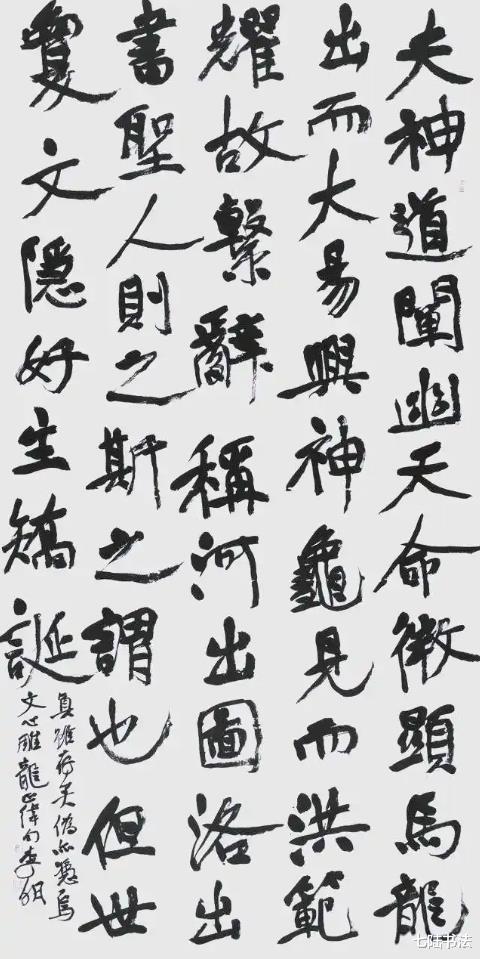 夫神道闡幽天命微顯馬龍
出而大易興神龜見而洪範
耀故繫辭稱河出圖洛出
書聖人則之斯之謂也但世
夐文隱好生矯誕
真雖存矣偽亦憑焉
文心雕龍正緯句
七陆书法